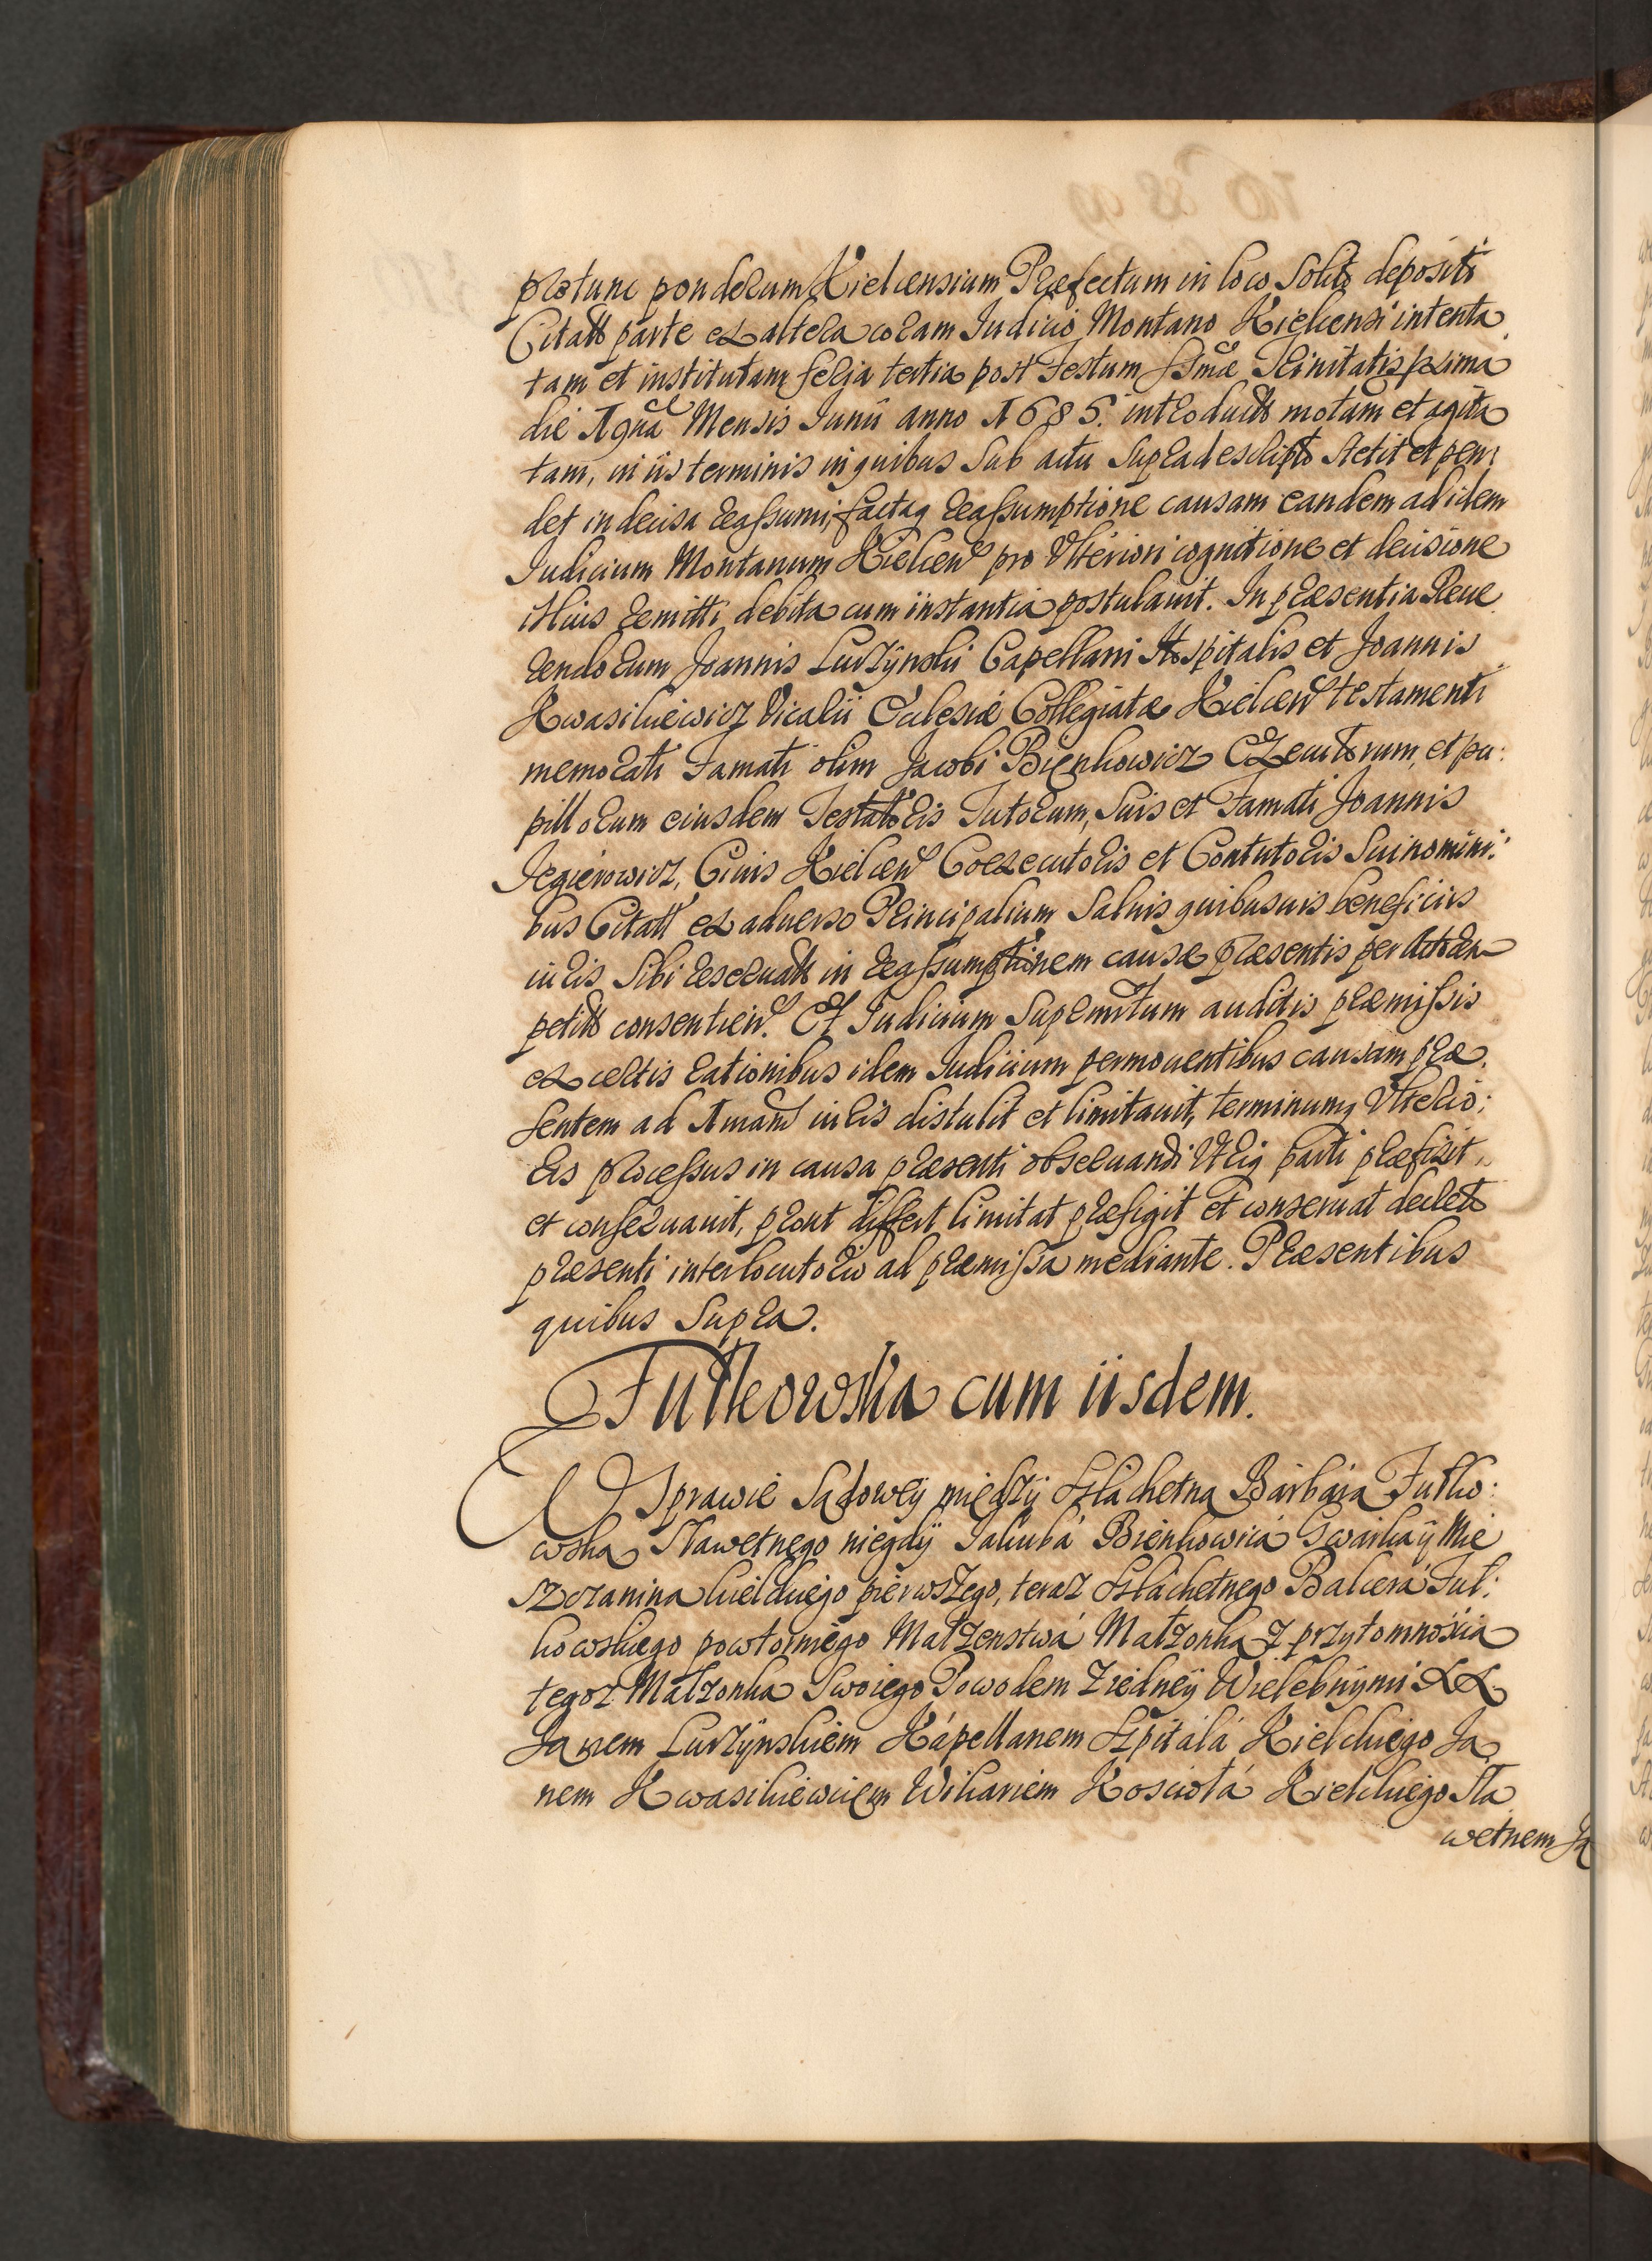 protunc ponderum Kielcensium Præfectum in loco Solito depositi
Citatto parte ex altera coram Judicio Montano Kielcensi intenta
tam et institutam feria tertia post Festum SSmæ Trinitatis prima
die Mensis Junii anno 1685. introducto motam et agita
tam, in iis terminis in quibus Sub actu Supradescripto stetit et pen,
det indecisa reassumi, factaq reassumptione causam eandem ad idem
Judicium Montanum Kielcen pro Ulteriori cognitione et decisione
illius remitti debita cum instantia postulavit. In præsentia Reue
rendorum Joannis Lurzÿnski Capellani Hospitalis et Joannis
Kwasikiewicz Vicarii Ecclesiæ Collegiatæ Kielcen testamenti
memorati Famati olim Jacobi Bienkowicz Executorum, et pu:
pillorum eiusdem Testatoris Tutorum, Suis et Famati Joannis
Jegierowicz, Ciuis Kielcen Coexecutoris et Contutoris Sui nomini:
bus Citatt ex aduerso Principalium Saluis quibusuis beneficiis
iuris Sibi reseruatis in reassumptionem causæ præsentis per Actorea
petito consentien. Et Judicium Supremum auditis præmissis
ex certis rationibus idem Judicium permouentibus causam præ
sentem ad iuris distulit et limitauit, terminumq Ulterio:
ris processus in causa præsenti obseruandi Utriq parti præfixit,
et conseruauit, prout differt limitat præfigit et conseruat decreto
præsenti interlocutorio ad præmissa mediante. Præsentibus
quibus Supra.
Futkowska cum iisdem.
W Sprawie Sądoweÿ międzÿ Szlachetną Barbarą Futko:
wską Sławetnego niegdÿ Jakuba Bienkowica Gwarka ÿ Mie
szczanina kielckiego pierwszego, teraz Szlachetnego Balcera Fut:
kowskiego powtornego Małzenstwa Małzonką z przytomnoscią
tegoz Małzonka Swoiego Powodem z iedneÿ Wielebnÿmi XX.
Janem Lurzÿnskiem Kapellanem Szpitala Kielckiego Ja
nem Kwasikiewicem Wikariem Koscioła Kielckiego Sła
wetnem Ja